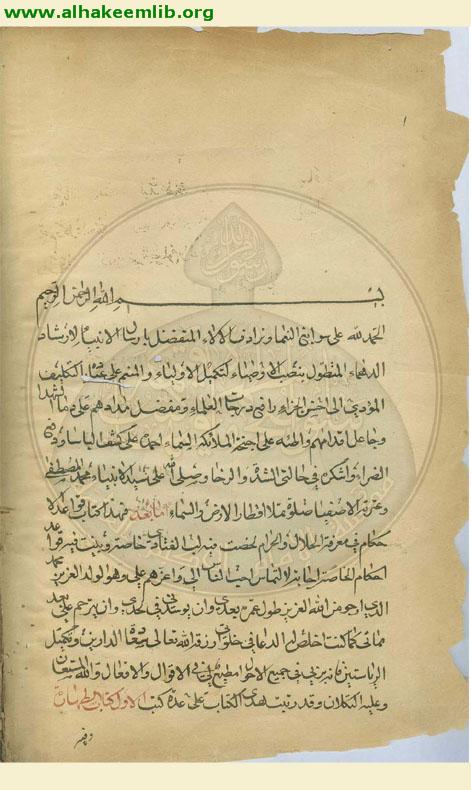 www.alhakeemlib.org
١
بسم الله الرحمن الرحيم
الحمد لله على سوابغ النعماء وترادف الالاء المتفضل بارسال الانبياء لارشاد
الدهماء المتطول بنصب الاوصياء لتكميل الاولياء والمنعم على عباده بالتكليف
المؤدي الى احسن الجزاء رافع درجات العلماء ومفضل مدادهم على دماء الشهداء
وجاعل اقدامهم واطئة على اجنحة ملائكة السماء احمده على كشف الباساء ودفع
الضراء واشكره في حالتي الشدة والرخاء وصلى الله على سيد الانبياء محمد المصطفى
وعترته الاصفياء صلوة تملا اقطار الارض والسماء اما بعد فهذا كتاب قواعد الا
حكام في معرفة الحلال والحرام لخصت فيه لب الفتاوى خاصة وبينت فيه قواعد
احكام الخاصة اجابة لالتماس احب الناس الي واعزهم علي وهو الولد العزيز محمد
الذي ارجو من الله العزيز طول عمره بعدي وان يوسدني في لحدي وان يترحم علي بعد
مماتي كما كنت اخلص له الدعا في خلواتي رزقه الله تعالى سعادة الدارين وتكميل
الرياستين فانه بر بي في جميع الاحوال مطيع لي في الاقوال والافعال والله المستعان
وعليه التكلان وقد رتبت هذا الكتاب على عدة كتب الاول كتاب الطهارة
وفيه